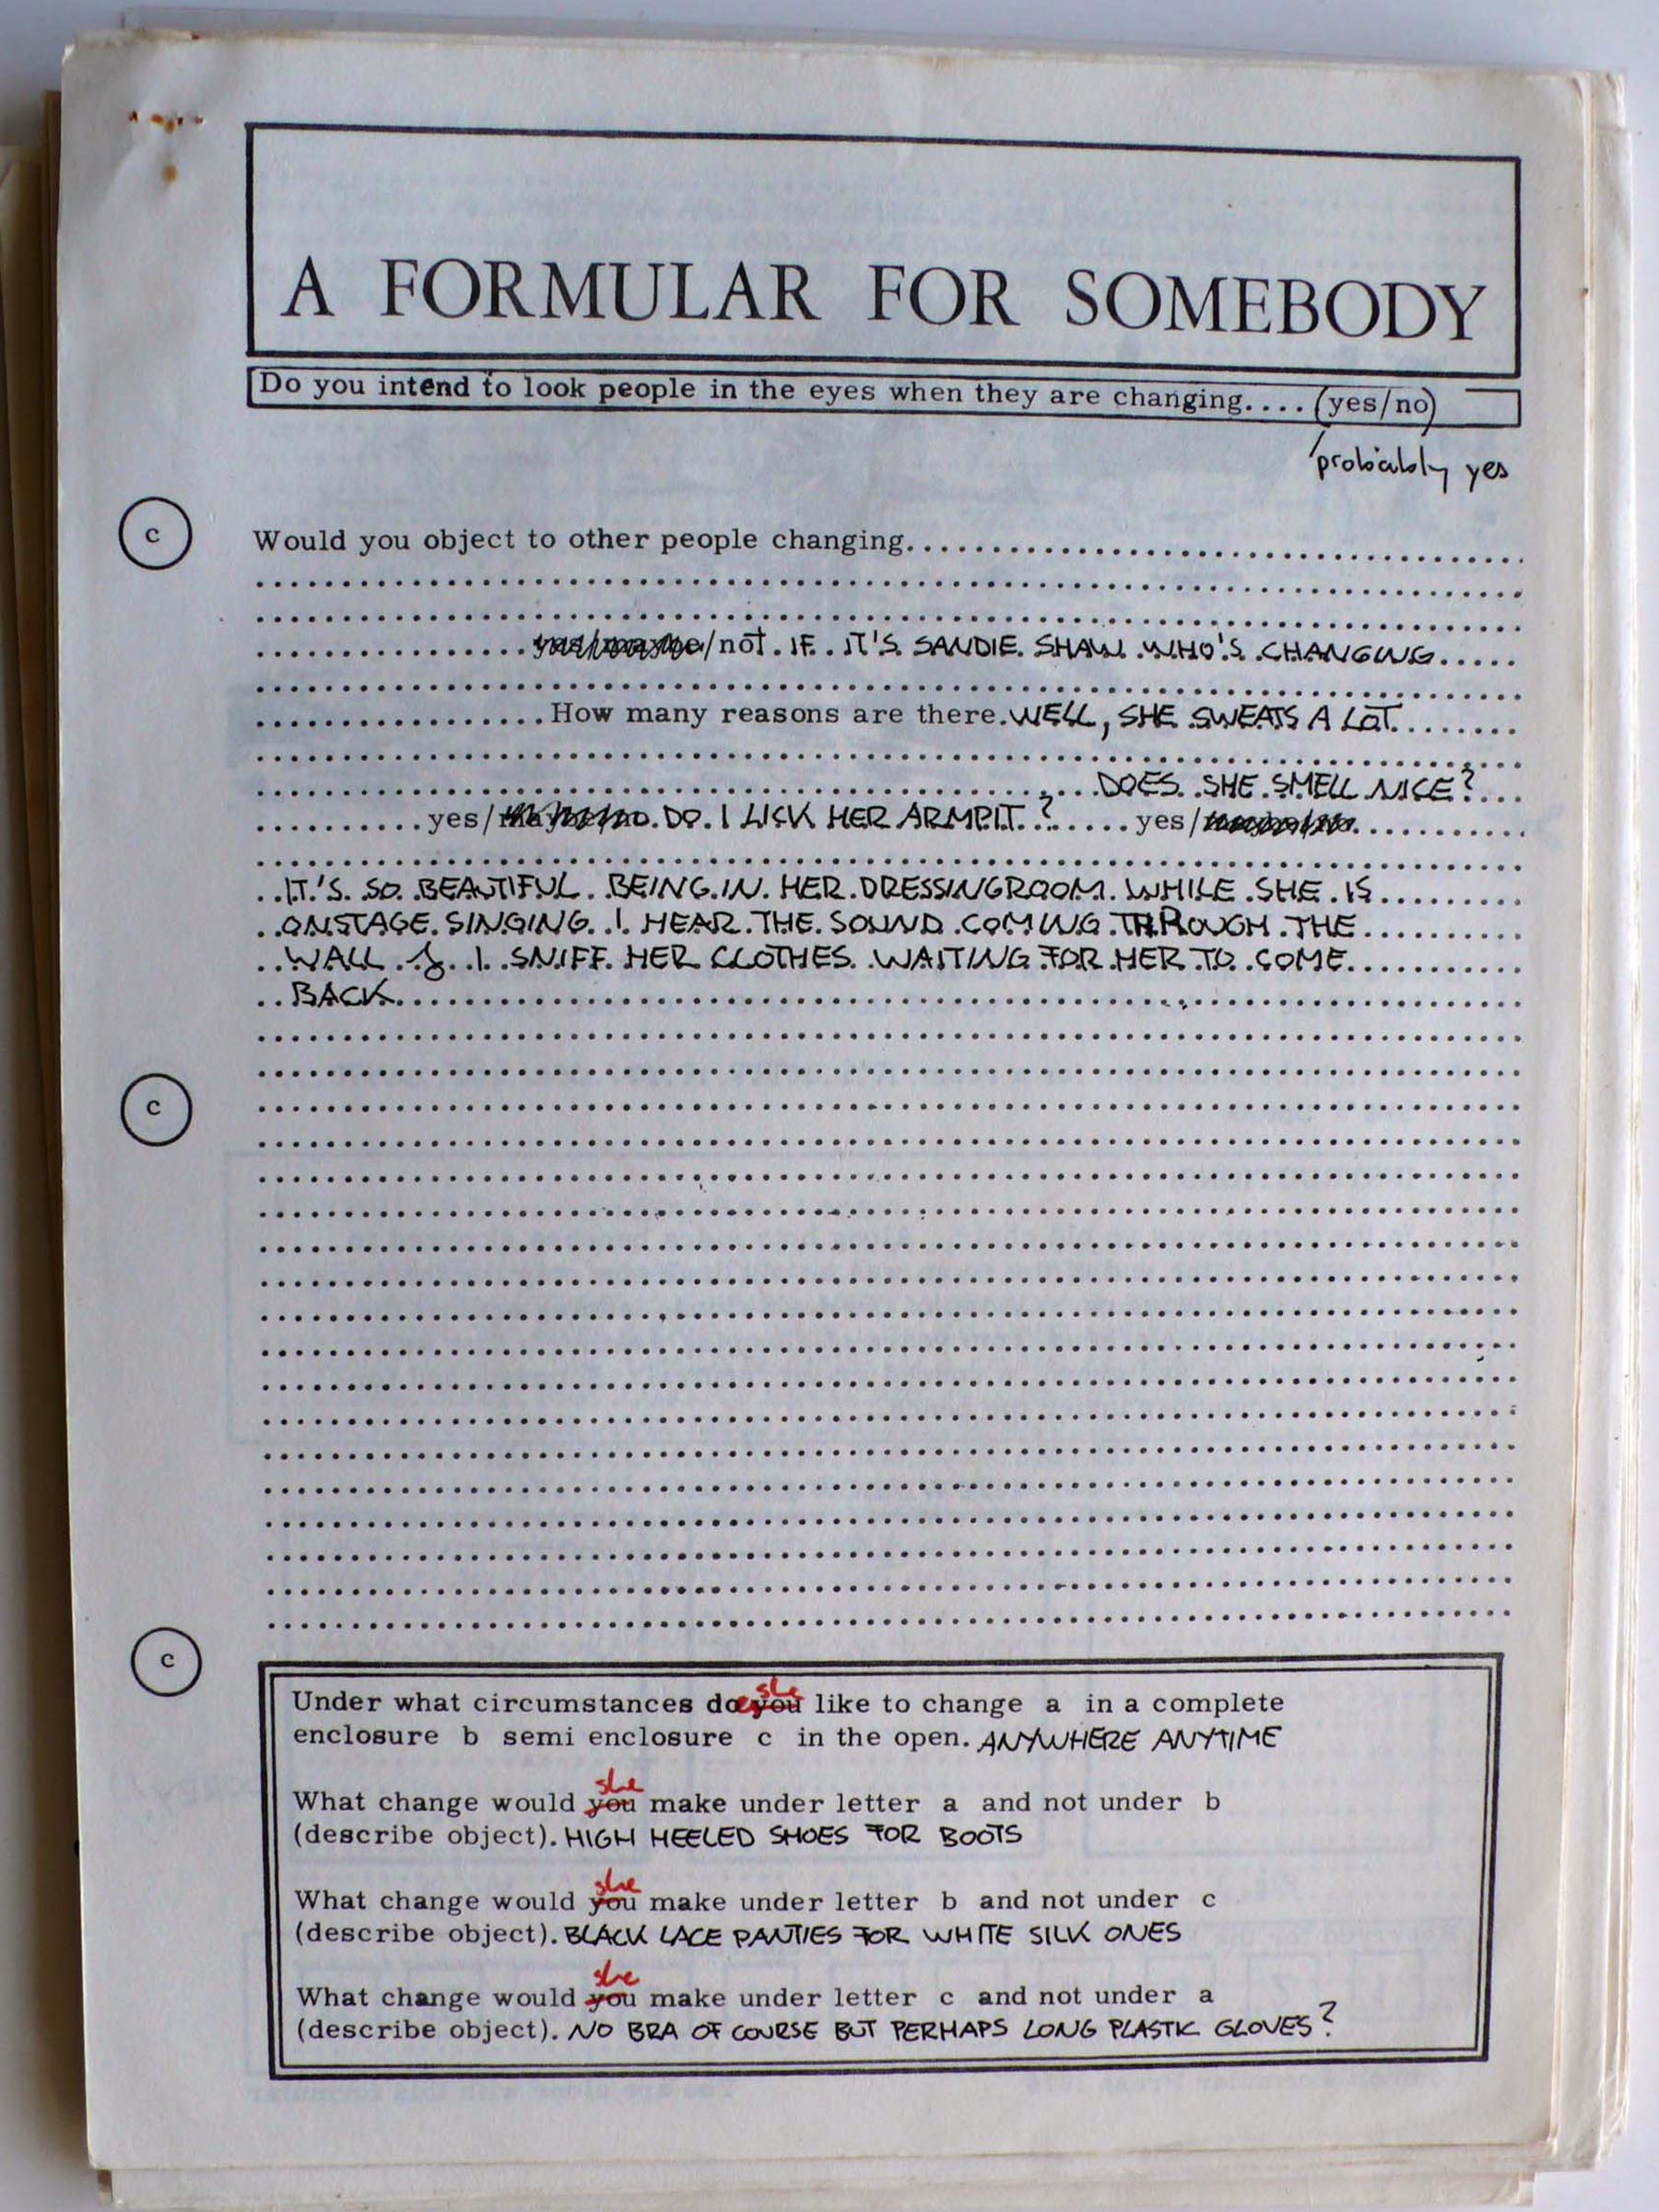 A FORMULAR FOR SOMEBODY
Do you intend to look people in the eyes when they are changing.... (yes/no)
probably yes
c
Would you object to other people changing
yes/maybe/not. IF IT'S SANDIE SHAW WHO'S CHANGING
How many reasons are there. WELL, SHE SWEATS A LOT.
DOES SHE SMELL NICE?
yes/maybe/no. DO I LICK HER ARMPIT? yes/maybe/no
IT'S SO BEAUTIFUL BEING IN HER DRESSINGROOM WHILE SHE IS
ONSTAGE SINGING. I HEAR THE SOUND COMING THROUGH THE
WALL & I SNIFF HER CLOTHES WAITING FOR HER TO COME
BACK
c
c
Under what circumstances does she you like to change a in a complete
enclosure b semi enclosure c in the open. ANYWHERE ANYTIME
she
What change would you make under letter a and not under b
(describe object). HIGH HEELED SHOES FOR BOOTS
she
What change would you make under letter b and not under c
(describe object). BLACK LACE PANTIES FOR WHITE SILK ONES
she
What change would you make under letter c and not under a
(describe object). NO BRA OF COURSE BUT PERHAPS LONG PLASTIC GLOVES?